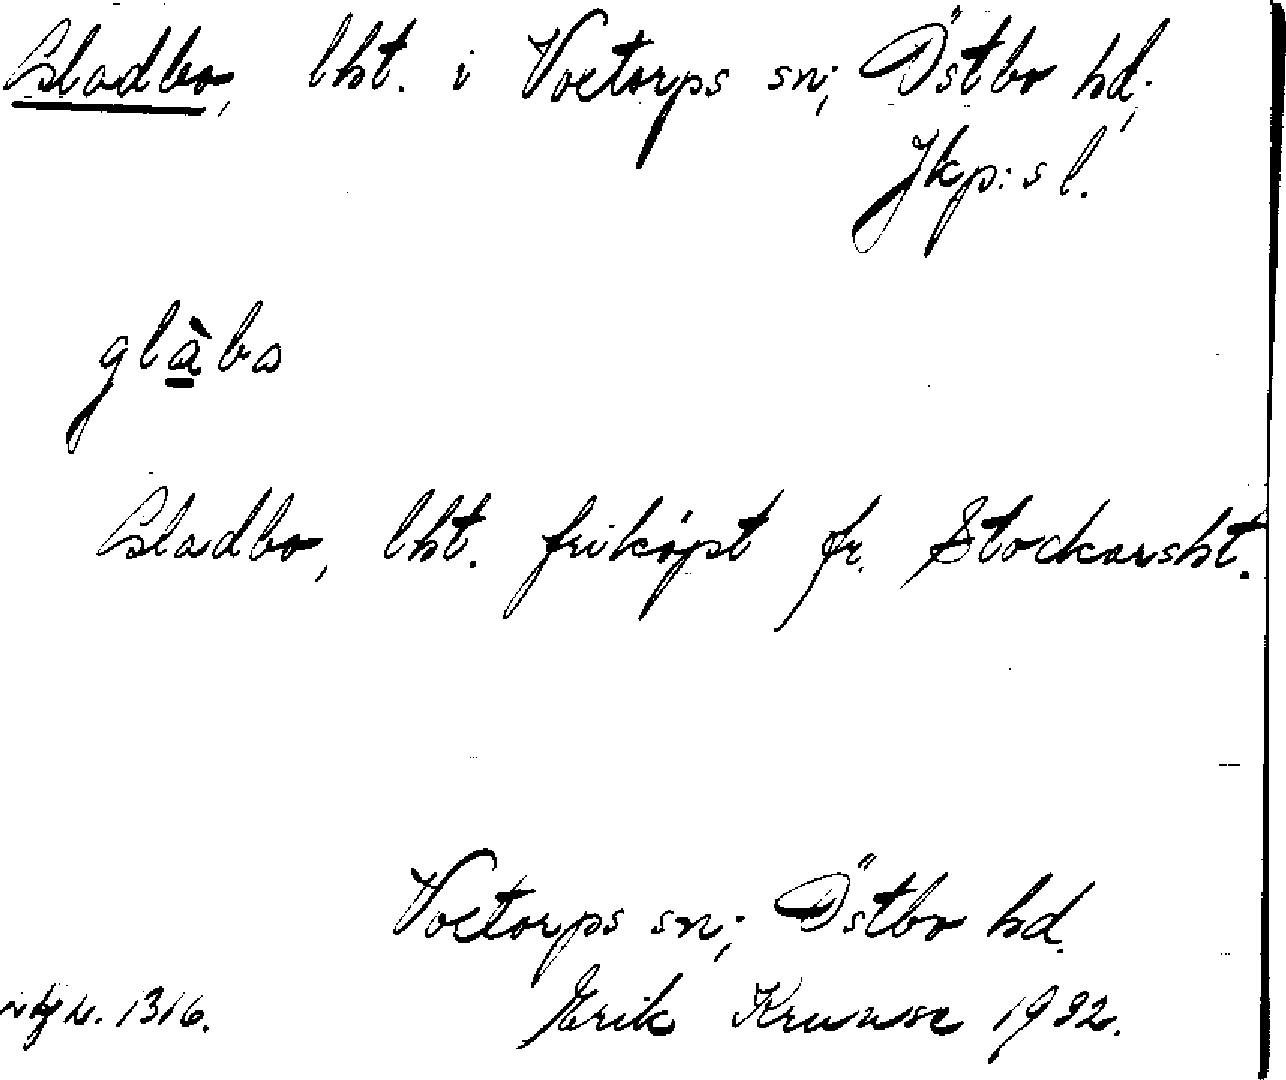 Gladbo, lht. i Voetorps sn; Östbo hd;
Jkp:s l.
glàbo
Gladbo, lht. friköpt fr. Stockarsht.
Voetorps sn; Östbo hd.
1316. Erik Kruuse 1932.